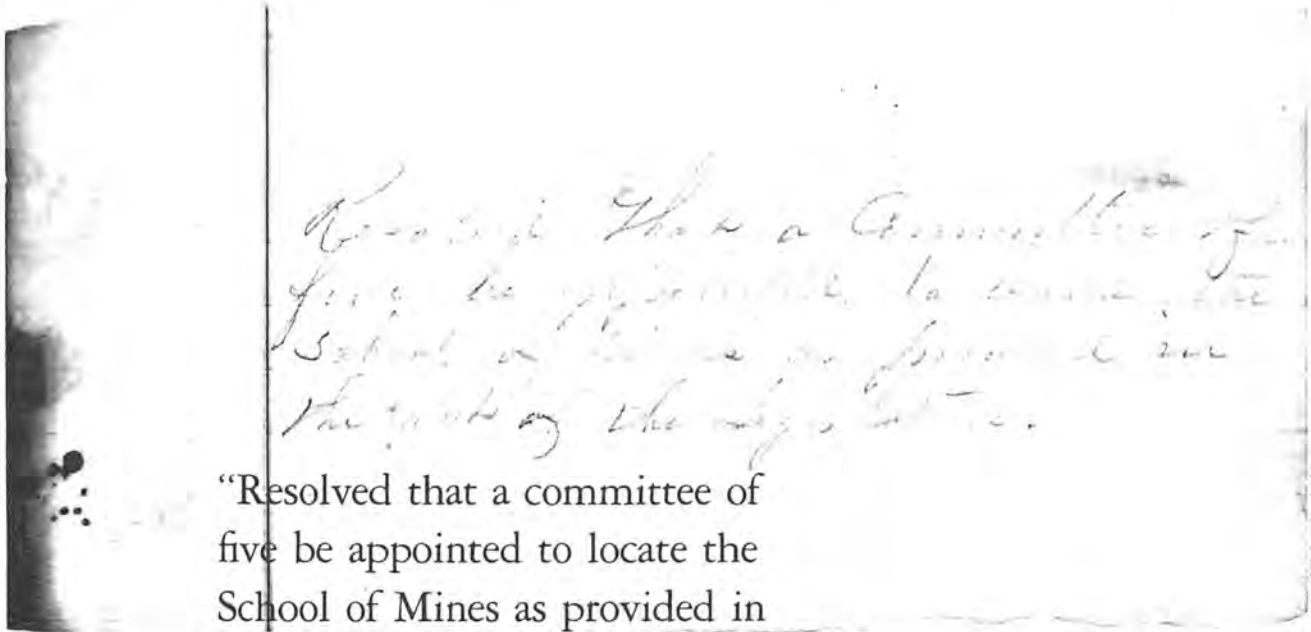 Resolved That a Committee of
five be appointed to locate the
School of Mines as provided in
the act of the Legislature.
“Resolved that a committee of
five be appointed to locate the
School of Mines as provided in